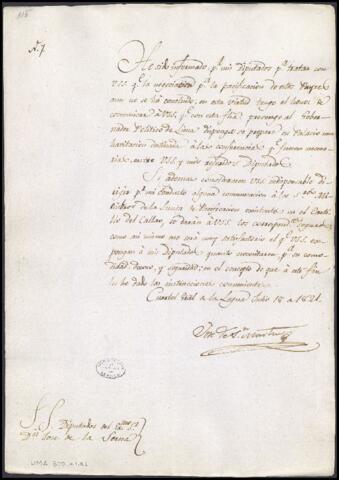 115
N. 7.
He sido informado pr mis Diputados pa tratar con
V.SS. qe la negociacion pa la pacificacion de estos Payses
aun no se ha concluido, en esta virtud tengo el honor de
comunicar á V.SS. qe con esta fha prevengo al Gober-
nador Politico de Lima disponga se prepare en Palacio una
havitacion destinada á las conferencias qe fueren necesa-
rias entre V.SS. y mis Diputados.
Si ademas consideraren V.SS. indispensable di-
rigir pr mi conducto alguna comunicacion á los
de la Junta de Pacificacion existente en el Casti-
llo del Callao, se darán á V.SS. los correspondtes
como así mismo me será muy satisfactorio el qe V.SS. ex-
pongan á mis Diputados quanto necesitaren pa su como-
didad, decoro, y seguridad; en el concepto de que á este fin
les he dado las instrucciones convenientes.
Cuartel Gral de la Legua Julio 18 de 1821.
Jose de Sn Martin
S.S. Diputados del Exmo Sr
Dn Jose de la Serna
LIMA